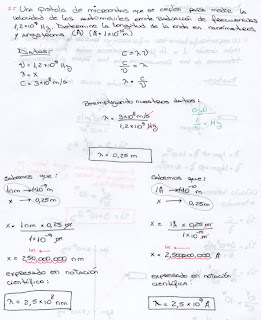 25. Una pistola de microondas que se emplea para medir la
velocidad de los automóviles emite radiación de frecuencias
1,2×10⁹ Hz. Determine la longitud de la onda en nanómetros
y angstroms (Å) (Å = 1×10⁻¹⁰ m)
Datos:
ν = 1,2×10⁹ Hz
λ = x
C = 3×10⁸ m/s
C = λ ν
C/ν = λ
λ = C/ν
Reemplazando nuestros datos:
λ = 3×10⁸ m/s
1,2×10⁹ Hz
λ = 0,25 m
Sabemos que:
1nm → 10⁻⁹ m
x → 0,25m
x = 1nm × 0,25 m
1×10⁻⁹ m
x = 250,000,000 nm
expresado en notación
científica:
λ = 2,5×10⁸ nm
Sabemos que:
1Å → 10⁻¹⁰ m
x → 0,25m
x = 1Å × 0,25 m
1×10⁻¹⁰ m
x = 2,500,000,000 Å
expresado en notación
científica:
λ = 2,5×10⁹ Å